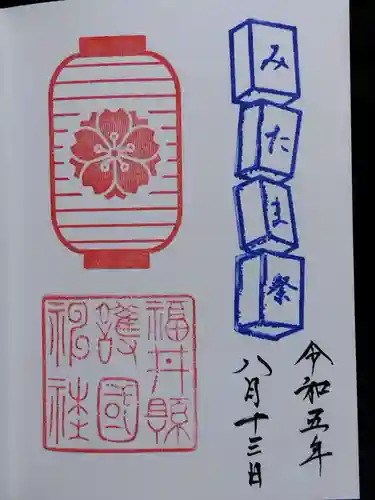 みたま祭
令和五年
八月十三日
福井縣
護國
神社